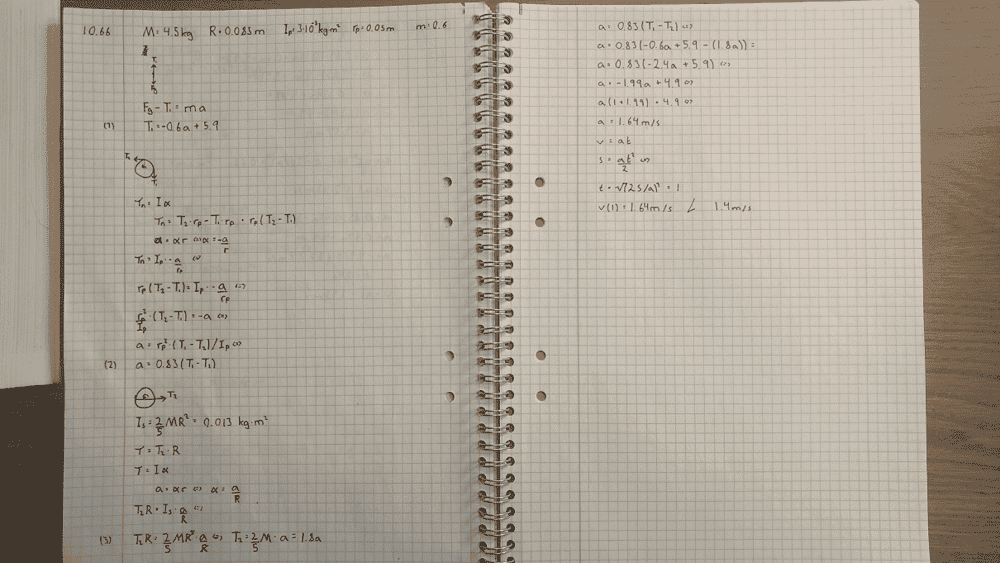 10.66 M=4.5kg R=0.085m Ip=3·10⁻³kgm² rp=0.05m m=0.6
T₁
Fg
Fg-T₁=ma
(1) T₁=-0.6a+5.9
T₂
T₁
τn=Iα
τn=T₂·rp-T₁·rp=rp(T₂-T₁)
a=αr⇔α=-a/r
τn=Ip·-a/rp ⇔
rp(T₂-T₁)=Ip·-a/rp ⇔
rp²/Ip·(T₂-T₁)=-a ⇔
a=rp²·(T₁-T₂)/Ip ⇔
(2) a=0.83(T₁-T₂)
T₂
Is=2/5MR²=0.013 kg·m²
τ=T₂·R
τ=Iα
a=αr ⇔ α=a/R
T₂R=Is·a/R ⇔
(3) T₂R=2/5MR²·a/R ⇔ T₂=2/5M·a=1.8a
a=0.83(T₁-T₂) ⇔
a=0.83(-0.6a+5.9-(1.8a))=
a=0.83(-2.4a+5.9) ⇔
a=-1.99a+4.9 ⇔
a(1+1.99)=4.9 ⇔
a=1.64m/s
v=at
s=at²/2 ⇔
t=√(2s/a) = 1
v(1)=1.64m/s ∠ 1.4m/s